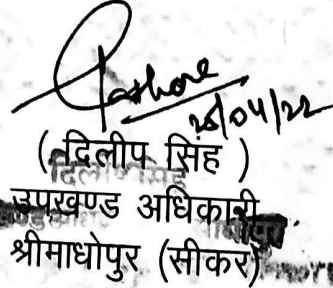 26/04/22
( दिलीप सिंह )
उपखण्ड अधिकारी
श्रीमाधोपुर (सीकर)